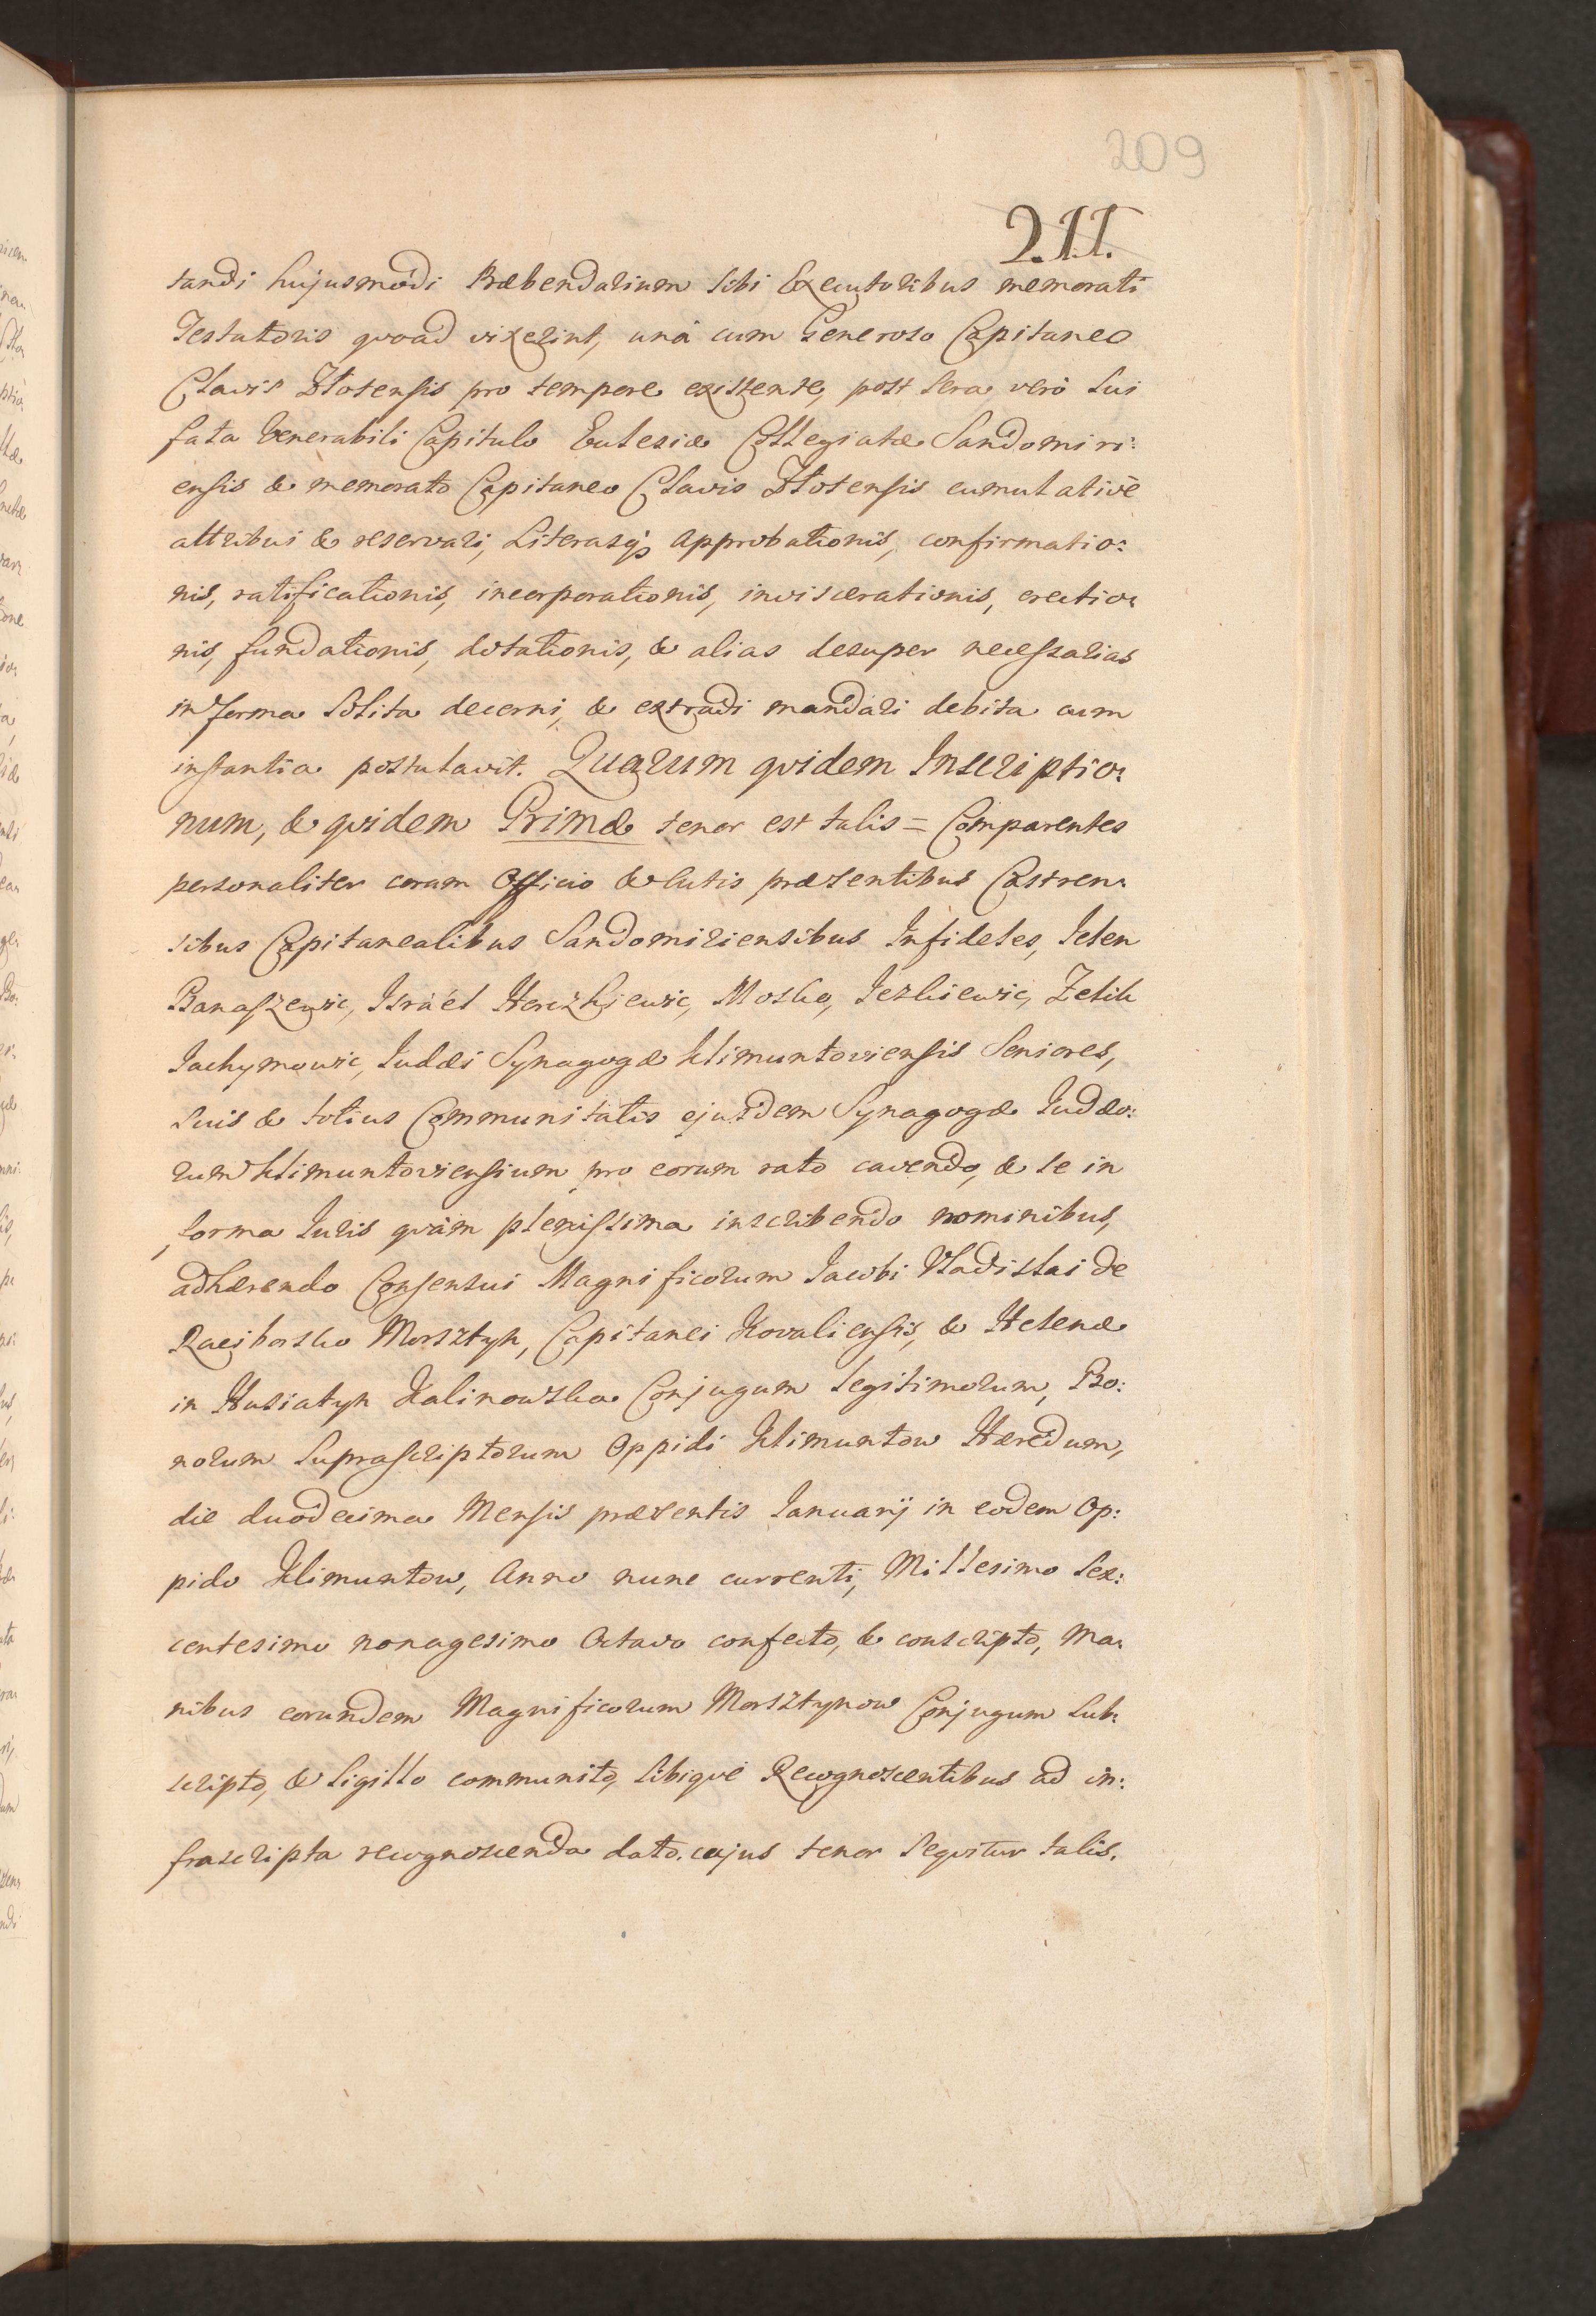 209
211.
tandi hujusmodi Præbendarium sibi Executoribus memorati
Testatoris qvoad vixerint, unà cum Generoso Capitaneo
Clavis Złotensis pro tempore existente, post sera verò sui
fata Venerabili Capitulo Eclesiæ Collegiatæ Sandomiri:
ensis & memorato Capitaneo Clavis Złotensis cumulativè
attribui & reservari, Literasq; Approbationis, confirmatio:
nis, ratificationis, incorporationis, inviscerationis, erectio:
nis, fundationis, dotationis, & alias desuper necessarias
in forma solita decerni, & extradi mandari debita cum
instantia postulavit. Quarum qvidem Inscriptio:
num, & qvidem Primæ tenor est talis = Comparentes
personaliter coram Officio & Actis præsentibus Castren:
sibus Capitanealibus Sandomiriensibus Infideles, Jelen
Banaszewic, Israél Herczkiewic, Mosko, Jezkiewic, Zelik
Jachymowic, Judæi Synagogæ Klimuntoviensis Seniores,
suis & totius Communitatis ejusdem Synagogæ Judæo:
rum Klimuntoviensium pro eorum rato cavendo, & se in
forma Juris qvàm plenissima inscribendo nominibus,
adhærendo Consensui Magnificorum Jacobi Vladislai de
Raciborsko Morsztyn, Capitanei Kovaliensis, & Helenæ
in Husiatyn Kalinowska Conjugum legitimorum, Bo:
norum suprascriptorum Oppidi Klimuntow Hæredum,
die duodecima Mensis præsentis Januarij in eodem Op:
pido Klimuntow, Anno nunc currenti, Millesimo sex:
centesimo nonagesimo Octavo confecto, & conscripto, Ma:
nibus eorundem Magnificorum Morsztynow Conjugum sub:
scripto, & sigillo communito, sibiqve Recognoscentibus ad in:
frascripta recognoscenda dato. cujus tenor seqvitur talis.